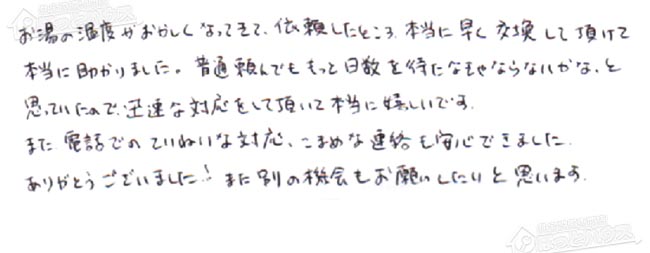 お湯の温度がおかしくなってきて、依頼したところ、本当に早く交換して頂けて
本当に助かりました。普通頼んでももっと日数を待たなきゃならないかな、と
思っていたので、迅速な対応をして頂いて本当に嬉しいです。
また、電話でのていねいな対応、こまめな連絡も安心できました。
ありがとうございました！また別の機会もお願いしたいと思います。